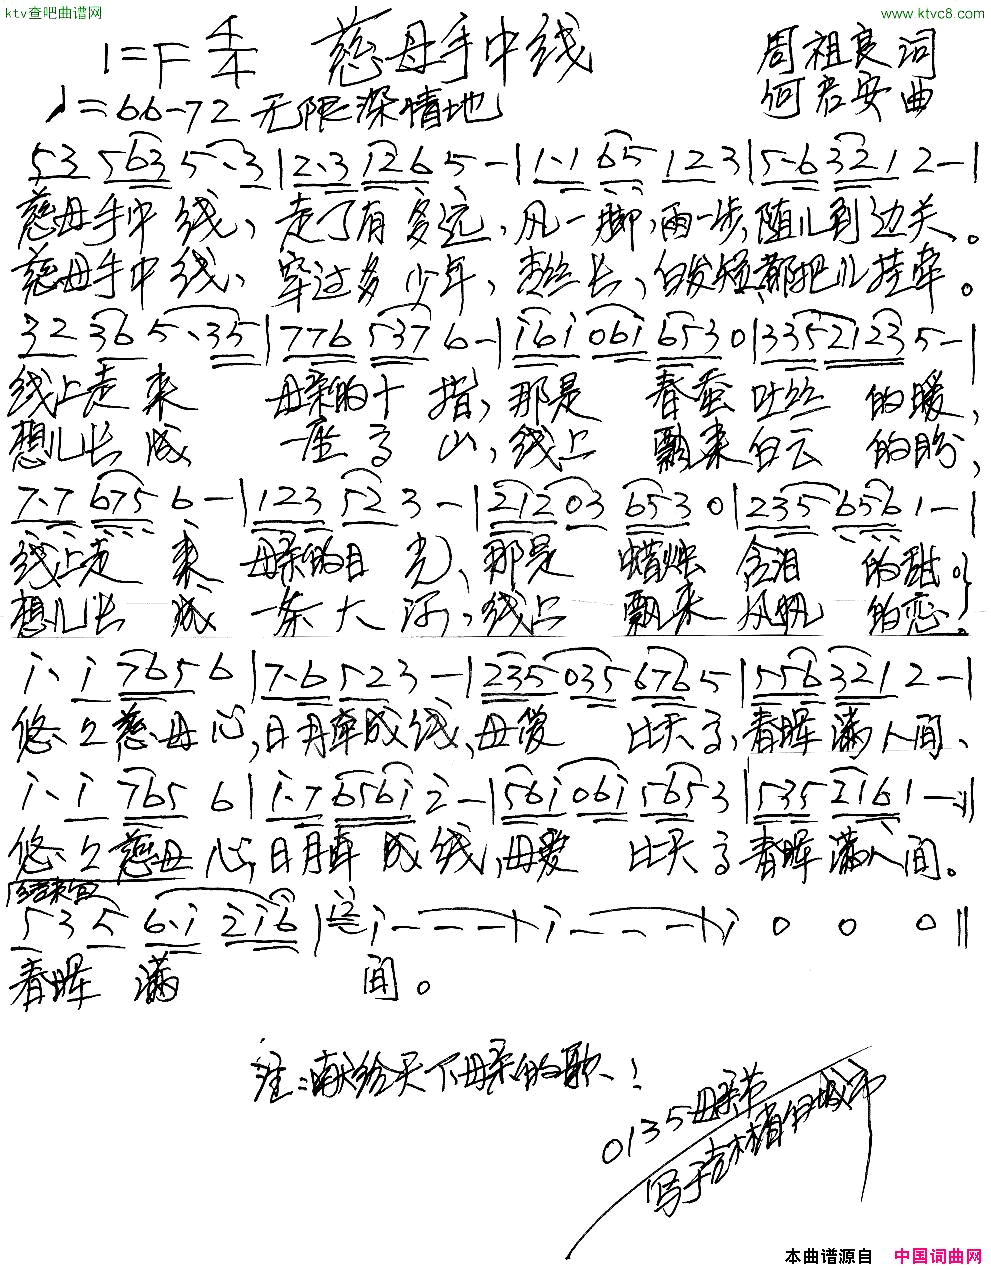 ktv查吧曲谱网
www.ktvc8.com
1=F 4/4 慈母手中线 周祖良词
♩=66-72 无限深情地 何君安曲
53 563 5·3|2·3 126 5-|1·1 65 123|5·6 321 2-|
慈母手中线,走了有多远,风一脚,雨一步,随儿到边关。
慈母手中线,穿过多少年,青丝长,白发短,都把儿挂牵。
32 36 5·35|776 537 6-|i6i 06i 6530|335 2123 5-|
线上走来 母亲的十指,那是 春蚕吐丝 的暖,
想儿长成 一座高山,线上 飘来白云 的盼,
7·7 675 6-|123 523-|21203 6530|235 656 1-|
线上走来 母亲的目光,那是 蜡烛含泪 的甜。
想儿长成 一条大河,线上 飘来风帆 的恋。
i·i 765 6|7·6 523-|235 035 676 5|556 321 2-|
悠々慈母心,日月牵成线,母爱 比天高,春晖满人间、
i·i 765 6|i·7 656i 2-|56i 06i 565 3|535 216 1-||
悠々慈母心,日月牵成线,母爱 比天高 春晖满人间。
结束句
53 5 6·i 2i6|i---|i---|i 0 0 0||
春晖 满 间。
注:献给天下母亲的歌!
0135母亲节
写于吉林省白城市
本曲谱源自 中国词曲网